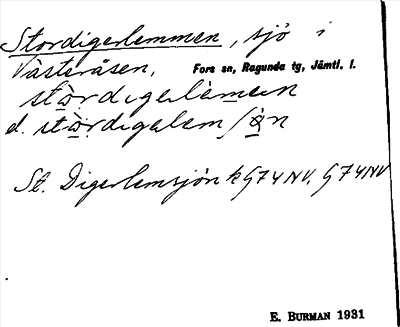 Stordigerlemmen, sjö i
Västeråsen, Fors sn, Ragunda tg, Jämtl. l.
stòrdigerlèmen
el. stòrdigalem/ṣ̀ọn
St. Digerlemsjön k G74NV. G74NV
E. BURMAN 1931